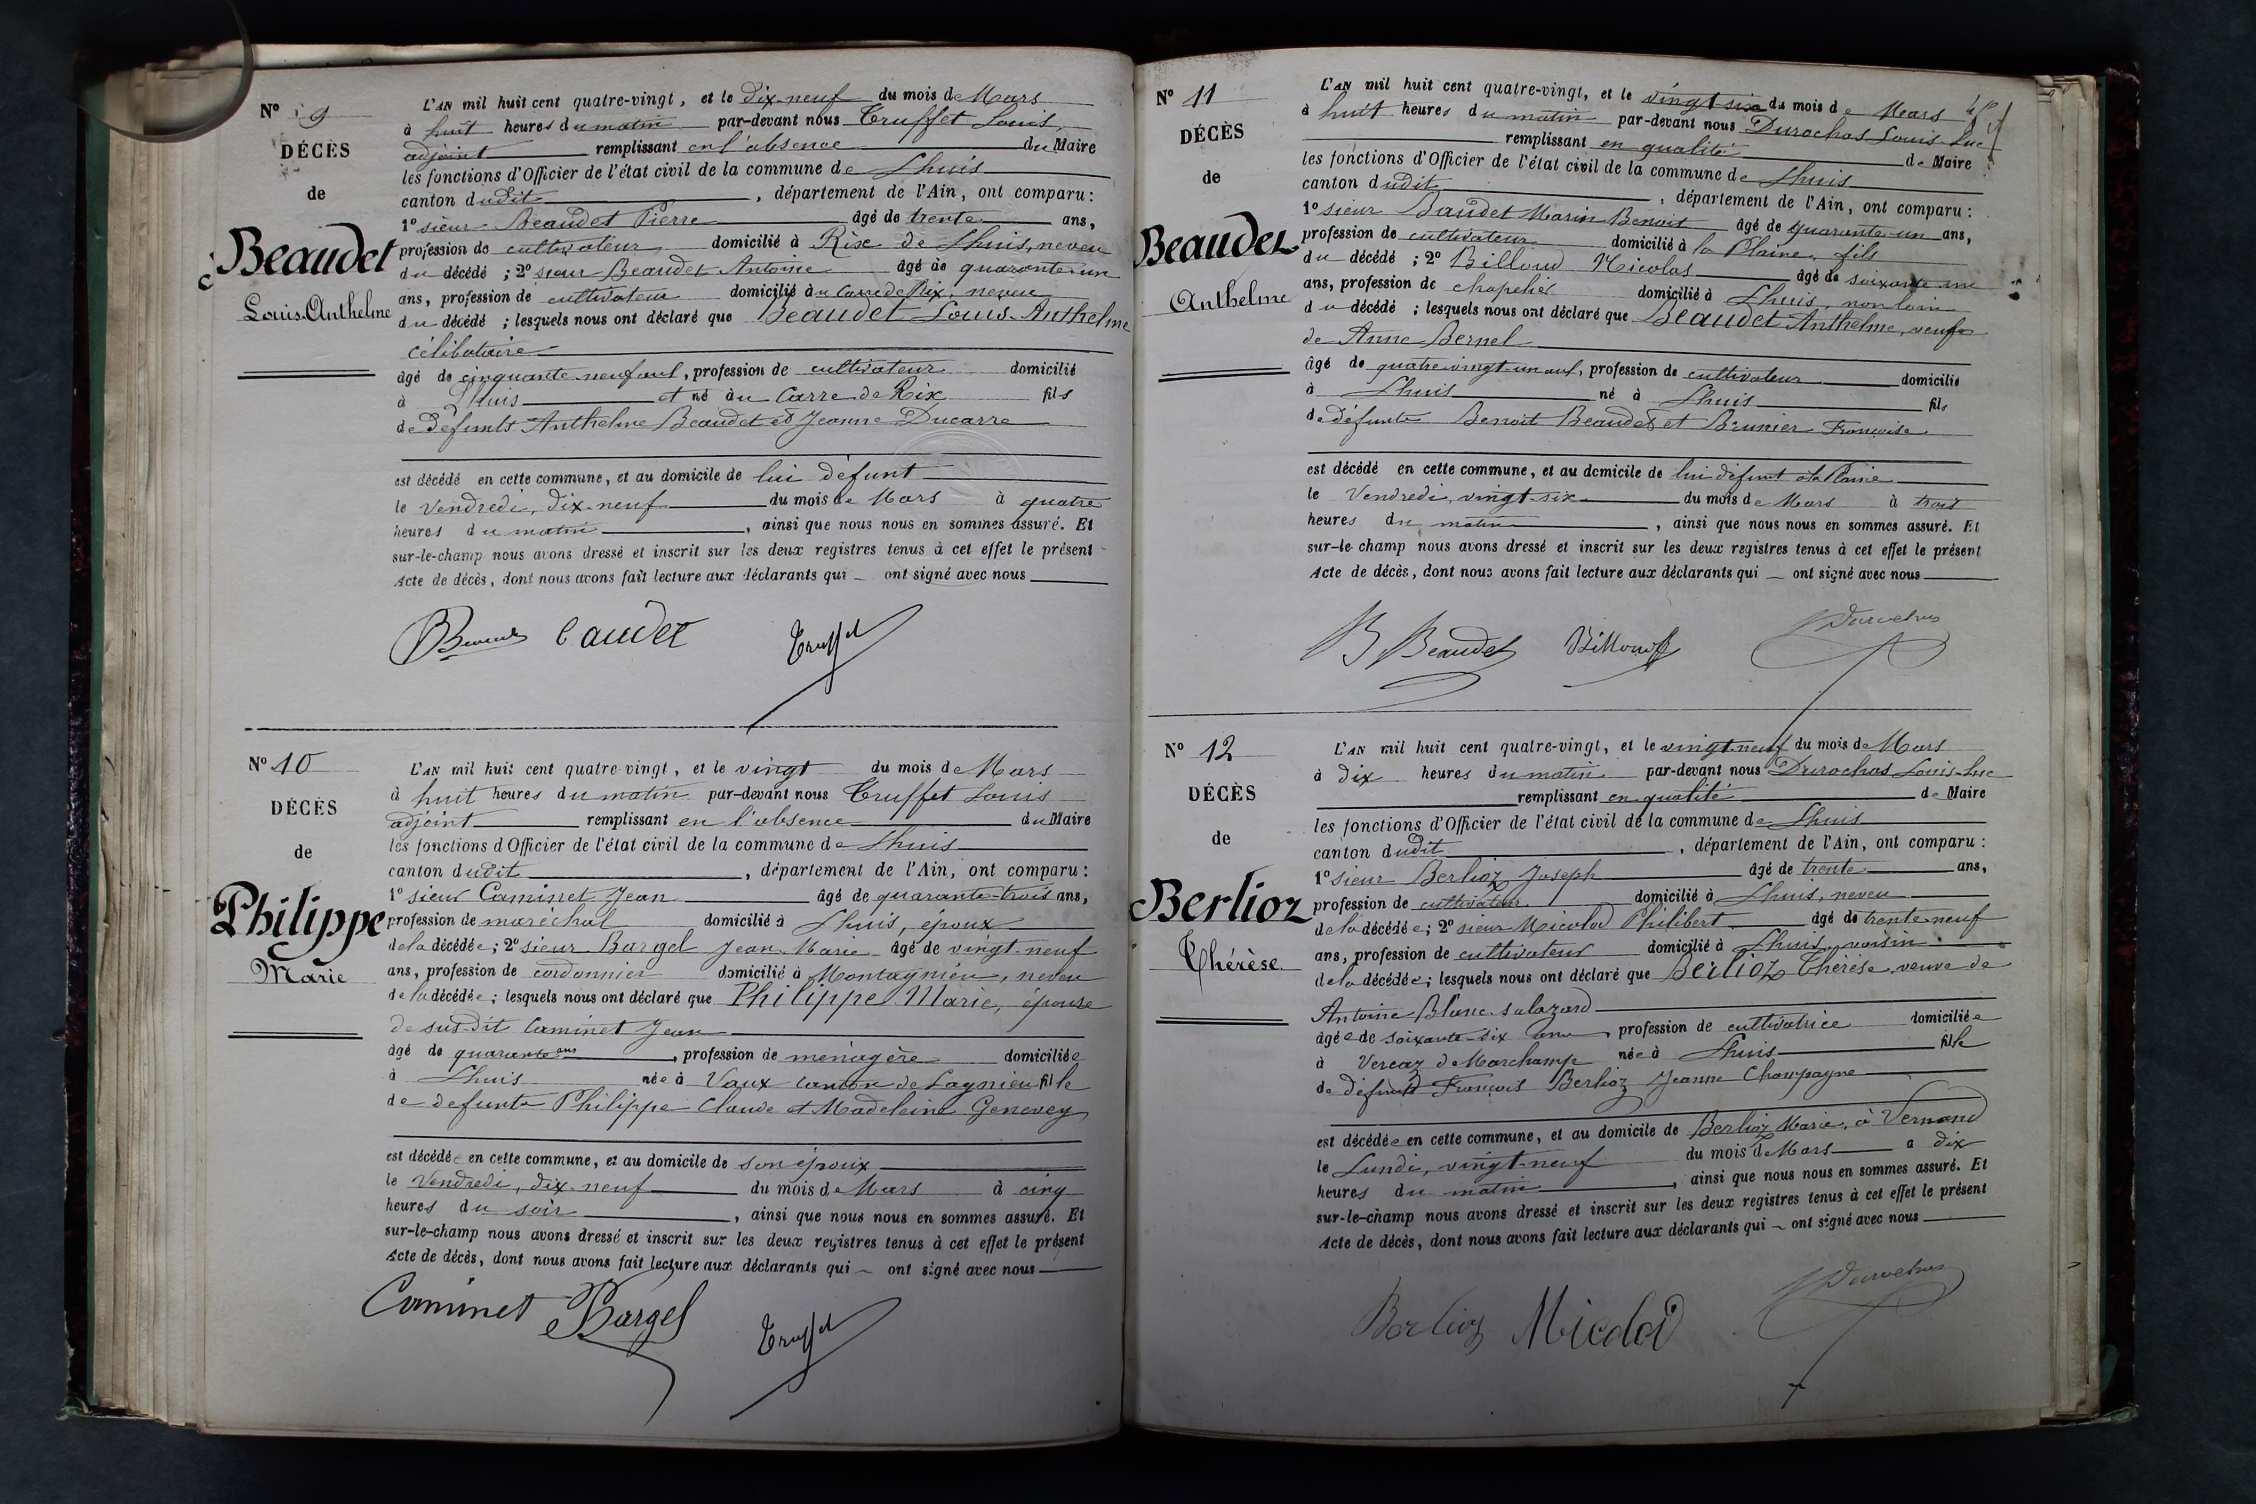 N° 9
DÉCÈS
de
Beaudet
Louis-Anthelme
L'AN mil huit cent quatre-vingt, et le dix-neuf du mois de Mars
à huit heures du matin par-devant nous Truffet Louis,
adjoint remplissant en l'absence du Maire
les fonctions d'Officier de l'état civil de la commune de Lhuis
canton dudit, département de l'Ain, ont comparu:
1° sieur Beaudet Pierre âgé de trente ans,
profession de cultivateur domicilié à Rix de Lhuis, neveu
du décédé ; 2° sieur Beaudet Antoine âgé de quarante-un
ans, profession de cultivateur domicilié au Carre de Rix, neveu
du décédé ; lesquels nous ont déclaré que Beaudet Louis-Anthelme
célibataire
âgé de cinquante-neuf ans, profession de cultivateur domicilié
à Lhuis et né au Carre de Rix fils
de défunts Anthelme Beaudet et Jeanne Ducarre
est décédé en cette commune, et au domicile de lui défunt
le Vendredi, dix-neuf du mois de Mars à quatre
heures du matin, ainsi que nous nous en sommes assuré. Et
sur-le-champ nous avons dressé et inscrit sur les deux registres tenus à cet effet le présent
Acte de décès, dont nous avons fait lecture aux déclarants qui — ont signé avec nous
Truffet
N° 10
DÉCÈS
de
Philippe
Marie
L'AN mil huit cent quatre-vingt, et le vingt du mois de Mars
à huit heures du matin par-devant nous Truffet Louis
adjoint remplissant en l'absence du Maire
les fonctions d'Officier de l'état civil de la commune de Lhuis
canton dudit, département de l'Ain, ont comparu:
1° sieur Caminet Jean âgé de quarante-trois ans,
profession de maréchal domicilié à Lhuis, époux
de la décédée ; 2° sieur Bargel Jean-Marie âgé de vingt-neuf
ans, profession de cordonnier domicilié à Montagnieu, neveu
de la décédée ; lesquels nous ont déclaré que Philippe Marie, épouse
de susdit Caminet Jean
âgé de quarante ans, profession de ménagère domiciliée
à Lhuis née à Vaux canton de Lagnieu fille
de defunts Philippe Claude et Madeleine Genevey
est décédée en cette commune, et au domicile de son époux
le Vendredi, dix-neuf du mois de Mars à cinq
heures du soir, ainsi que nous nous en sommes assuré. Et
sur-le-champ nous avons dressé et inscrit sur les deux registres tenus à cet effet le présent
Acte de décès, dont nous avons fait lecture aux déclarants qui — ont signé avec nous
Caminet Bargel Truffet
N° 11
DÉCÈS
de
Beaudet
Anthelme
L'AN mil huit cent quatre-vingt, et le vingt-six du mois de Mars
à huit heures du matin par-devant nous Durochas Louis-Luc
remplissant en qualité de Maire
les fonctions d'Officier de l'état civil de la commune de Lhuis
canton dudit, département de l'Ain, ont comparu:
1° sieur Baudet Marin Benoit âgé de quarante-un ans,
profession de cultivateur domicilié à la Plaine, fils
du décédé ; 2° Billoud Nicolas âgé de soixante-
ans, profession de chapelier domicilié à Lhuis, non loin
du décédé ; lesquels nous ont déclaré que Beaudet Anthelme, veuf
de Anne Bernel
âgé de quatre-vingt-un ans, profession de cultivateur domicilié
à Lhuis né à Lhuis fils
de défunts Benoit Beaudet et Brunier Françoise
est décédé en cette commune, et au domicile de lui défunt à la Plaine
le Vendredi, vingt-six du mois de Mars à trois
heures du matin, ainsi que nous nous en sommes assuré. Et
sur-le-champ nous avons dressé et inscrit sur les deux registres tenus à cet effet le présent
Acte de décès, dont nous avons fait lecture aux déclarants qui — ont signé avec nous
B Beaudet Billoud Durochas
N° 12
DÉCÈS
de
Berlioz
Thérèse
L'AN mil huit cent quatre-vingt, et le vingt-neuf du mois de Mars
à dix heures du matin par-devant nous Durochas Louis-Luc
remplissant en qualité de Maire
les fonctions d'Officier de l'état civil de la commune de Lhuis
canton dudit, département de l'Ain, ont comparu:
1° sieur Berlioz Joseph âgé de trente ans,
profession de cultivateur domicilié à Lhuis, neveu
de la décédée ; 2° sieur Micolod Philibert âgé de trente-neuf
ans, profession de cultivateur domicilié à Lhuis, voisin
de la décédée ; lesquels nous ont déclaré que Berlioz Thérèse, veuve de
Antoine Blanc-salazard
âgée de soixante-dix ans, profession de cultivatrice domiciliée
à Vercaz de Marchamp née à Lhuis fille
de défunts François Berlioz Jeanne Champagne
est décédée en cette commune, et au domicile de Berlioz Marie, à Vernand
le Lundi, vingt-neuf du mois de Mars a dix
heures du matin, ainsi que nous nous en sommes assuré. Et
sur-le-champ nous avons dressé et inscrit sur les deux registres tenus à cet effet le présent
Acte de décès, dont nous avons fait lecture aux déclarants qui — ont signé avec nous
Berlioz Micolod Durochas